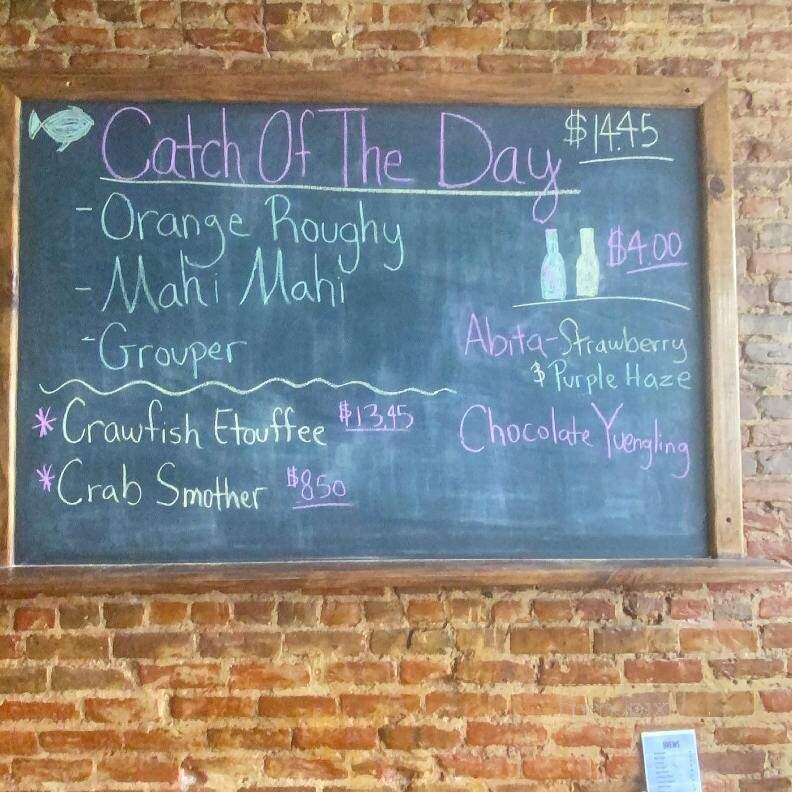 Catch Of The Day $14.45
-Orange Roughy
-Mahi Mahi
-Grouper
*Crawfish Etouffee $13.45
*Crab Smother $8.50
$4.00
Abita-Strawberry
& Purple Haze
Chocolate Yuengling
BREWS